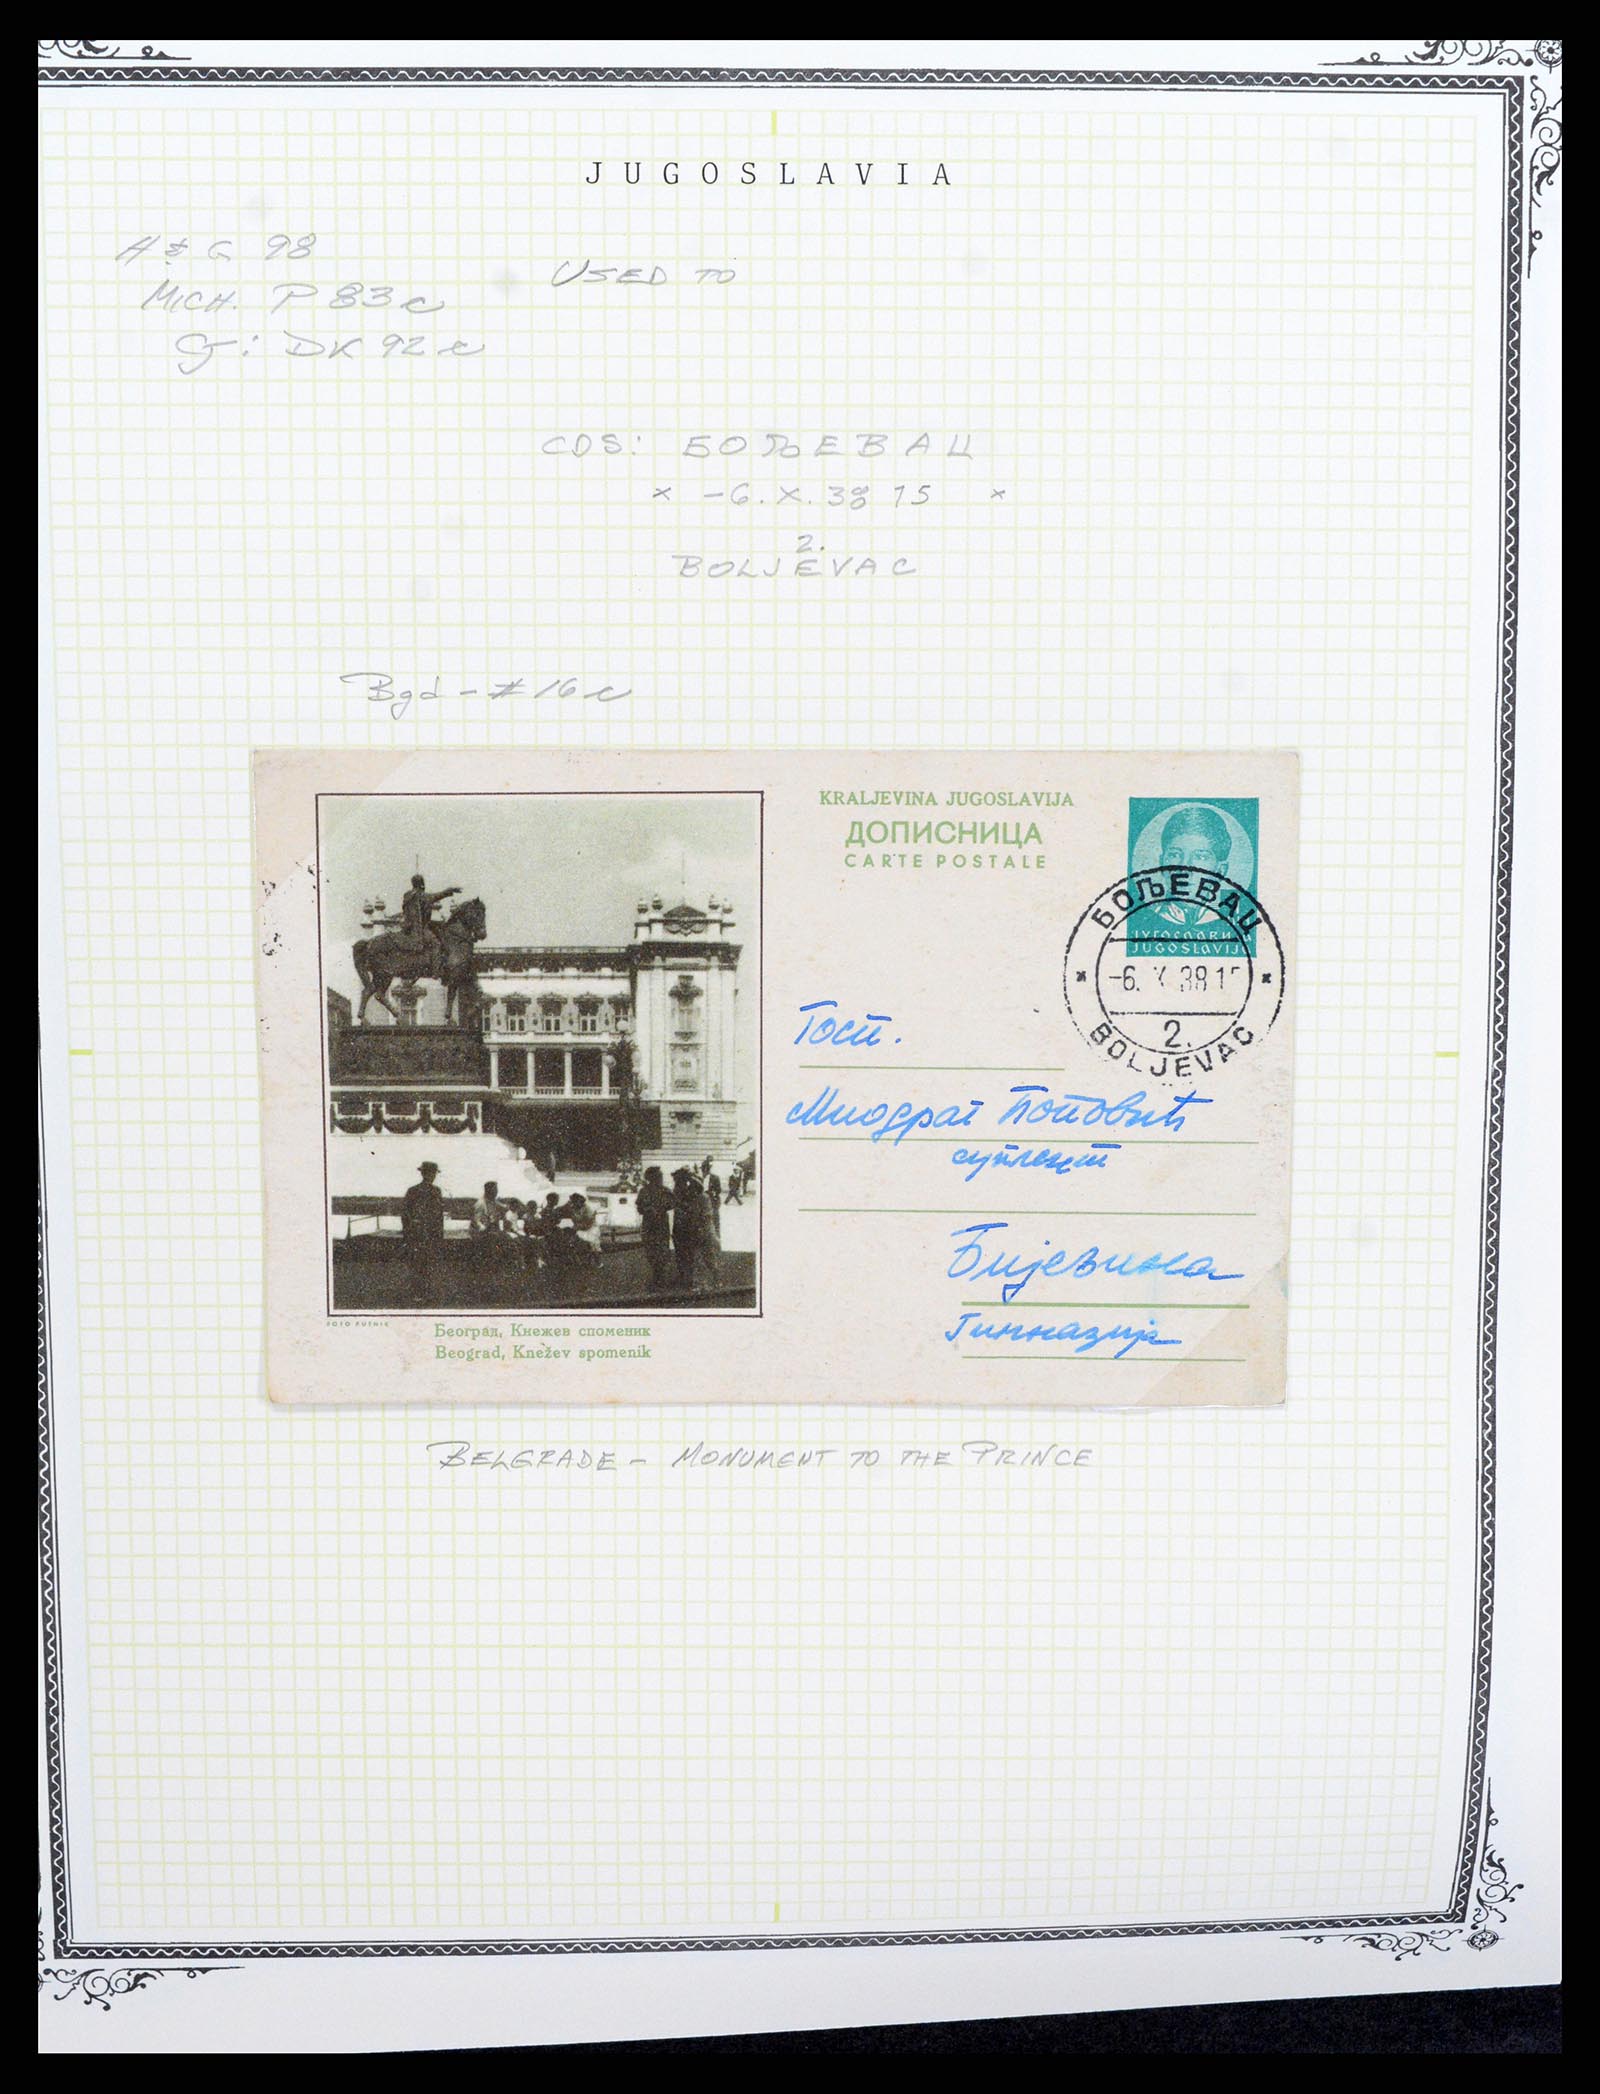 JUGOSLAVIA
H & G 98
USED TO
MICH. P 83c
DK 92c
CDS: БОЉЕВАЦ
x -6.X.38 15 x
2.
BOLJEVAC
Bgd - # 16c
KRALJEVINA JUGOSLAVIJA
ДОПИСНИЦА
CARTE POSTALE
ЈУГОСЛАВИЈА
JUGOSLAVIJA
БОЉЕВАЦ
-6. X 38 15
2.
BOLJEVAC
Госп.
Миодраг Поповић
суплент
Бијељина
Гимназија
FOTO PUTNIK
Београд, Кнежев споменик
Beograd, Knežev spomenik
BELGRADE - MONUMENT TO THE PRINCE